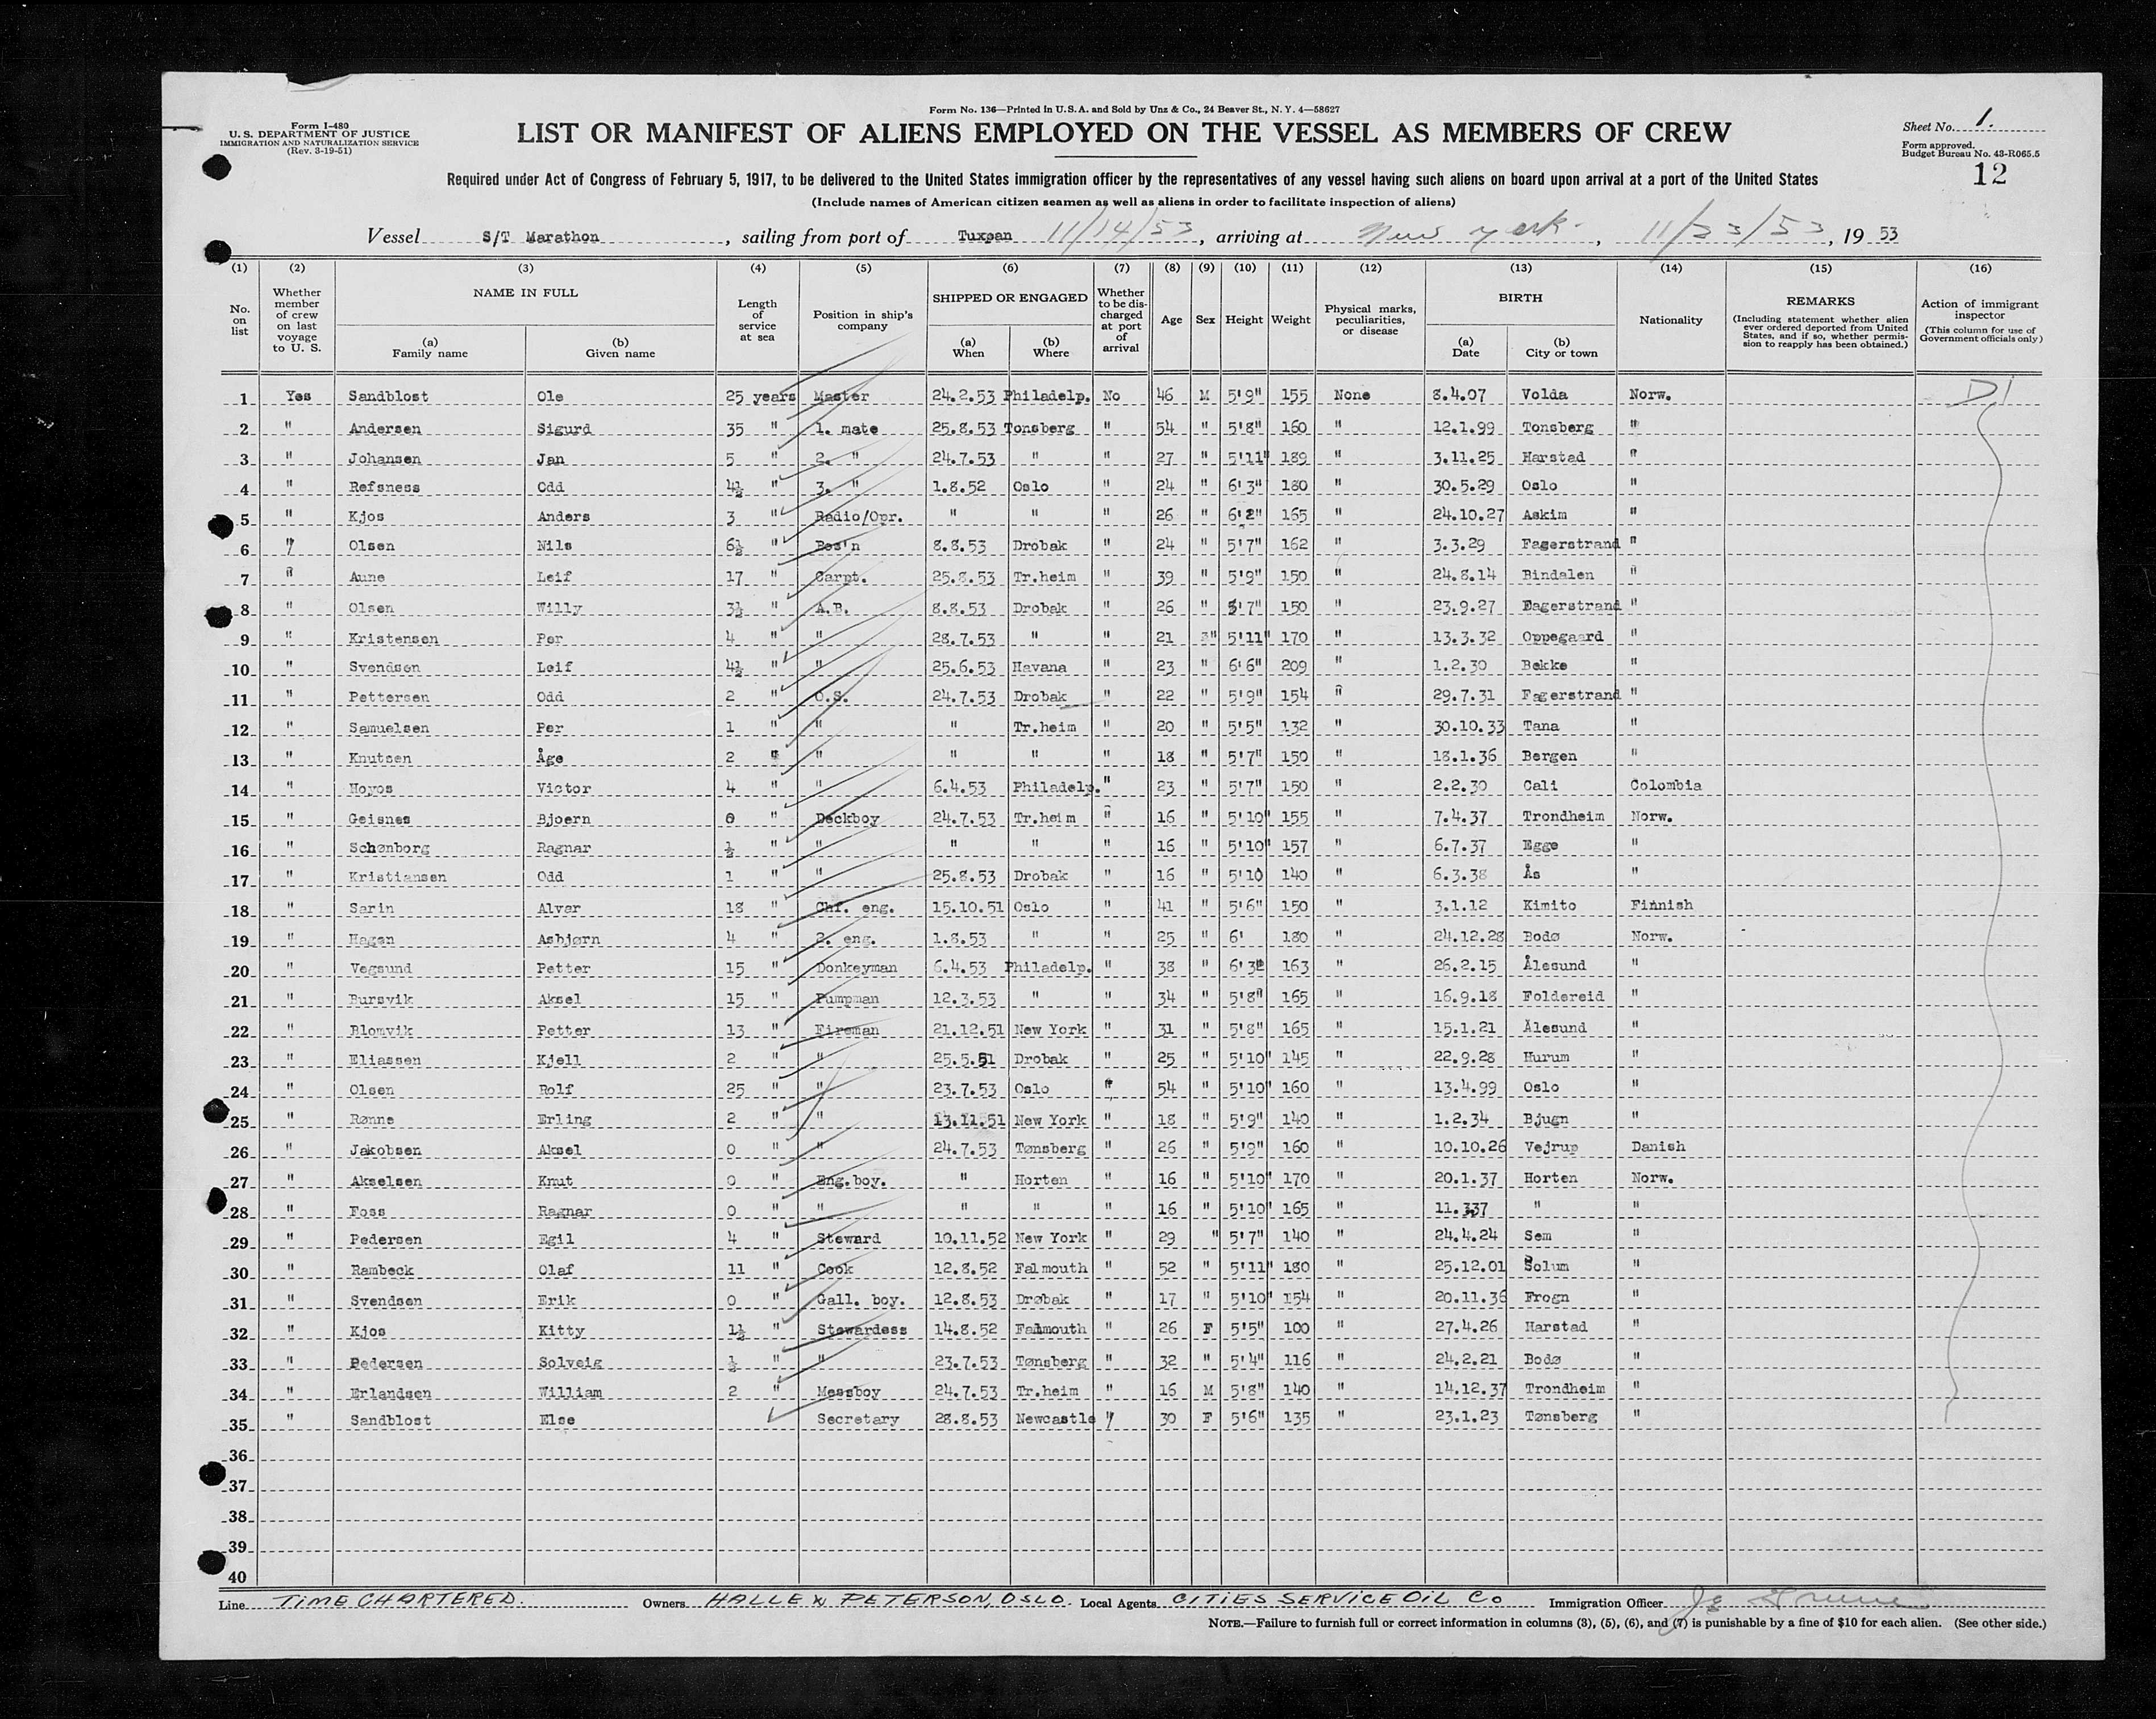 Form No. 136—Printed in U.S.A. and Sold by Unz & Co., 24 Beaver St., N. Y. 4—58627
Form I-480
U. S. DEPARTMENT OF JUSTICE
IMMIGRATION AND NATURALIZATION SERVICE
(Rev. 3-19-51)
LIST OR MANIFEST OF ALIENS EMPLOYED ON THE VESSEL AS MEMBERS OF CREW
Sheet No. 1.
Form approved.
Budget Bureau No. 43-R065.5
12
Required under Act of Congress of February 5, 1917, to be delivered to the United States immigration officer by the representatives of any vessel having such aliens on board upon arrival at a port of the United States
(Include names of American citizen seamen as well as aliens in order to facilitate inspection of aliens)
Vessel S/T Marathon, sailing from port of Tuxpan 11/14/53, arriving at New York, 11/23/53, 19 53
(1) (2) (3) (4) (5) (6) (7) (8) (9) (10) (11) (12) (13) (14) (15) (16)
No. on list
Whether member of crew on last voyage to U. S.
NAME IN FULL
(a) Family name
(b) Given name
Length of service at sea
Position in ship's company
SHIPPED OR ENGAGED
(a) When
(b) Where
Whether to be discharged at port of arrival
Age
Sex
Height
Weight
Physical marks, peculiarities, or disease
BIRTH
(a) Date
(b) City or town
Nationality
REMARKS
(Including statement whether alien ever ordered deported from United States, and if so, whether permission to reapply has been obtained.)
Action of immigrant inspector
(This column for use of Government officials only)
1 Yes Sandblost Ole 25 years Master 24.2.53 Philadelp. No 46 M 5'9" 155 None 8.4.07 Volda Norw. D1
2 " Andersen Sigurd 35 " 1. mate 25.8.53 Tonsberg " 54 " 5'8" 160 " 12.1.99 Tonsberg "
3 " Johansen Jan 5 " 2. " 24.7.53 " " 27 " 5'11" 189 " 3.11.25 Harstad "
4 " Refsness Odd 4½ " 3. " 1.8.52 Oslo " 24 " 6'3" 180 " 30.5.29 Oslo "
5 " Kjos Anders 3 " Radio/Opr. " " " 26 " 6'2" 165 " 24.10.27 Askim "
6 " Olsen Nils 6½ " Bos'n 8.8.53 Drobak " 24 " 5'7" 162 " 3.3.29 Fagerstrand "
7 " Aune Leif 17 " Carpt. 25.8.53 Tr.heim " 39 " 5'9" 150 " 24.8.14 Bindalen "
8 " Olsen Willy 3½ " A.B. 8.8.53 Drobak " 26 " 5'7" 150 " 23.9.27 Fagerstrand "
9 " Kristensen Per 4 " " 28.7.53 " " 21 " 5'11" 170 " 13.3.32 Oppegaard "
10 " Svendsen Leif 4½ " " 25.6.53 Havana " 23 " 6'6" 209 " 1.2.30 Bekke "
11 " Pettersen Odd 2 " O.S. 24.7.53 Drobak " 22 " 5'9" 154 " 29.7.31 Fagerstrand "
12 " Samuelsen Per 1 " " " Tr.heim " 20 " 5'5" 132 " 30.10.33 Tana "
13 " Knutsen Åge 2 " " " " " 18 " 5'7" 150 " 18.1.36 Bergen "
14 " Hoyos Victor 4 " " 6.4.53 Philadelp. " 23 " 5'7" 150 " 2.2.30 Cali Colombia
15 " Geisnes Bjoern 0 " Deckboy 24.7.53 Tr.heim " 16 " 5'10" 155 " 7.4.37 Trondheim Norw.
16 " Schønborg Ragnar ½ " " " " " 16 " 5'10" 157 " 6.7.37 Egge "
17 " Kristiansen Odd 1 " " 25.8.53 Drobak " 16 " 5'10 140 " 6.3.38 Ås "
18 " Sarin Alvar 18 " Chf. eng. 15.10.51 Oslo " 41 " 5'6" 150 " 3.1.12 Kimito Finnish
19 " Hagen Asbjørn 4 " 2. eng. 1.8.53 " " 25 " 6' 180 " 24.12.28 Bodø Norw.
20 " Vegsund Petter 15 " Donkeyman 6.4.53 Philadelp. " 38 " 6'3" 163 " 26.2.15 Ålesund "
21 " Bursvik Aksel 15 " Pumpman 12.3.53 " " 34 " 5'8" 165 " 16.9.18 Foldereid "
22 " Blomvik Petter 13 " Fireman 21.12.51 New York " 31 " 5'8" 165 " 15.1.21 Ålesund "
23 " Eliassen Kjell 2 " " 25.5.51 Drobak " 25 " 5'10" 145 " 22.9.28 Hurum "
24 " Olsen Rolf 25 " " 23.7.53 Oslo " 54 " 5'10" 160 " 13.4.99 Oslo "
25 " Rønne Erling 2 " " 13.11.51 New York " 18 " 5'9" 140 " 1.2.34 Bjugn "
26 " Jakobsen Aksel 0 " " 24.7.53 Tønsberg " 26 " 5'9" 160 " 10.10.26 Vejrup Danish
27 " Akselsen Knut 0 " Eng.boy. " Horten " 16 " 5'10" 170 " 20.1.37 Horten Norw.
28 " Foss Ragnar 0 " " " " " 16 " 5'10" 165 " 11.337 " "
29 " Pedersen Egil 4 " Steward 10.11.52 New York " 29 " 5'7" 140 " 24.4.24 Sem "
30 " Rambeck Olaf 11 " Cook 12.8.52 Falmouth " 52 " 5'11" 180 " 25.12.01 Solum "
31 " Svendsen Erik 0 " Gall. boy. 12.8.53 Drøbak " 17 " 5'10" 154 " 20.11.36 Frogn "
32 " Kjos Kitty 1½ " Stewardess 14.8.52 Falmouth " 26 F 5'5" 100 " 27.4.26 Harstad "
33 " Pedersen Solveig ½ " " 23.7.53 Tønsberg " 32 " 5'4" 116 " 24.2.21 Bodø "
34 " Erlandsen William 2 " Messboy 24.7.53 Tr.heim " 16 M 5'8" 140 " 14.12.37 Trondheim "
35 " Sandblost Else Secretary 28.8.53 Newcastle " 30 F 5'6" 135 " 23.1.23 Tønsberg "
36
37
38
39
40
Line TIME CHARTERED. Owners HALLE & PETERSON, OSLO. Local Agents CITIES SERVICE OIL Co Immigration Officer
NOTE.—Failure to furnish full or correct information in columns (3), (5), (6), and (7) is punishable by a fine of $10 for each alien. (See other side.)